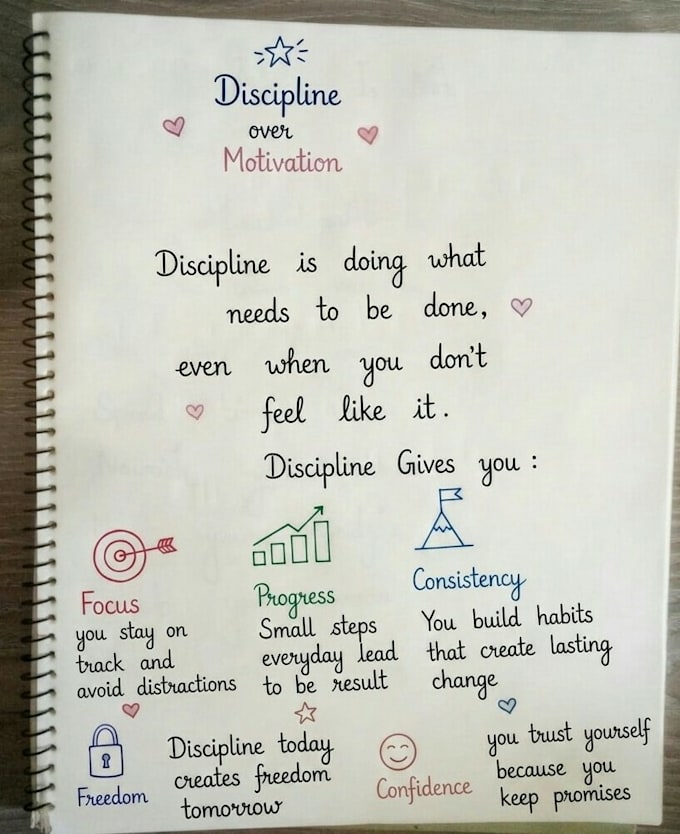 Discipline
over
Motivation
Discipline is doing what
needs to be done,
even when you don't
feel like it.
Discipline Gives you :
Focus
you stay on
track and
avoid distractions
Progress
Small steps
everyday lead
to be result
Consistency
You build habits
that create lasting
change
Freedom
Discipline today
creates freedom
tomorrow
Confidence
you trust yourself
because you
keep promises